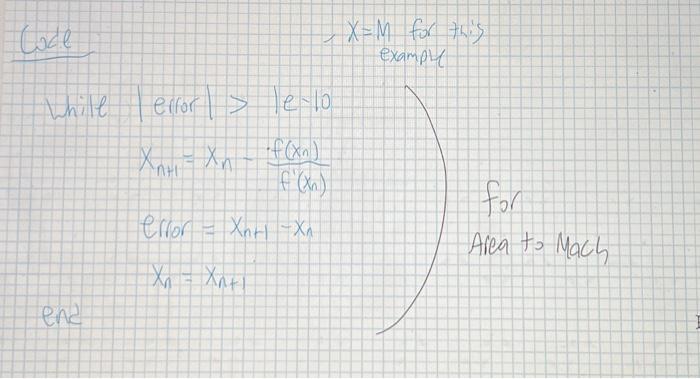 Code
X=M for this
example
while |error| > 1e-10
Xn+1 = Xn - f(Xn)/f'(Xn)
error = Xn+1 - Xn
Xn = Xn+1
end
for
Area to Mach